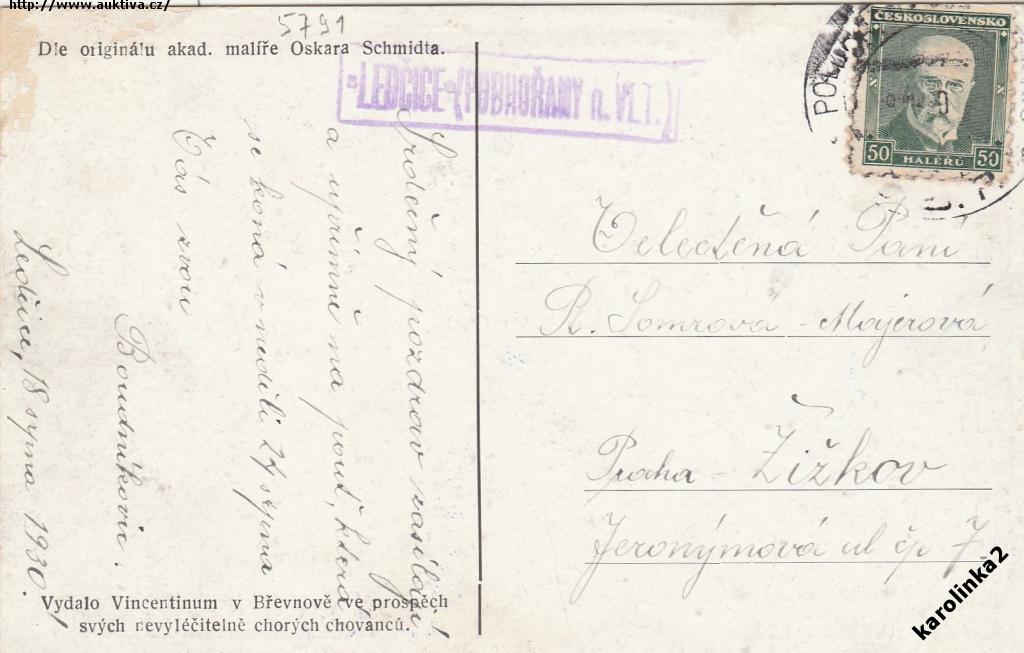 http://www.auktiva.cz/
5791
Dle originálu akad. malíře Oskara Schmidta.
LEDČICE-(PODHOŘANY n. VLT.)
ČESKOSLOVENSKO
50 HALÉŘŮ 50
Srdečný pozdrav zasílají
a upřimně na pouť, která
se koná v neděli 27 srpna
Vás zvou
Boudníkovi.
Ledčice, 18 srpna 1930.
Vydalo Vincentinum v Břevnově ve prospěch
svých nevyléčitelně chorých chovanců.
Velectěná Paní
R. Somrová - Majerová
Praha - Žižkov
Jeronýmová ul čp 7.
karolinka2